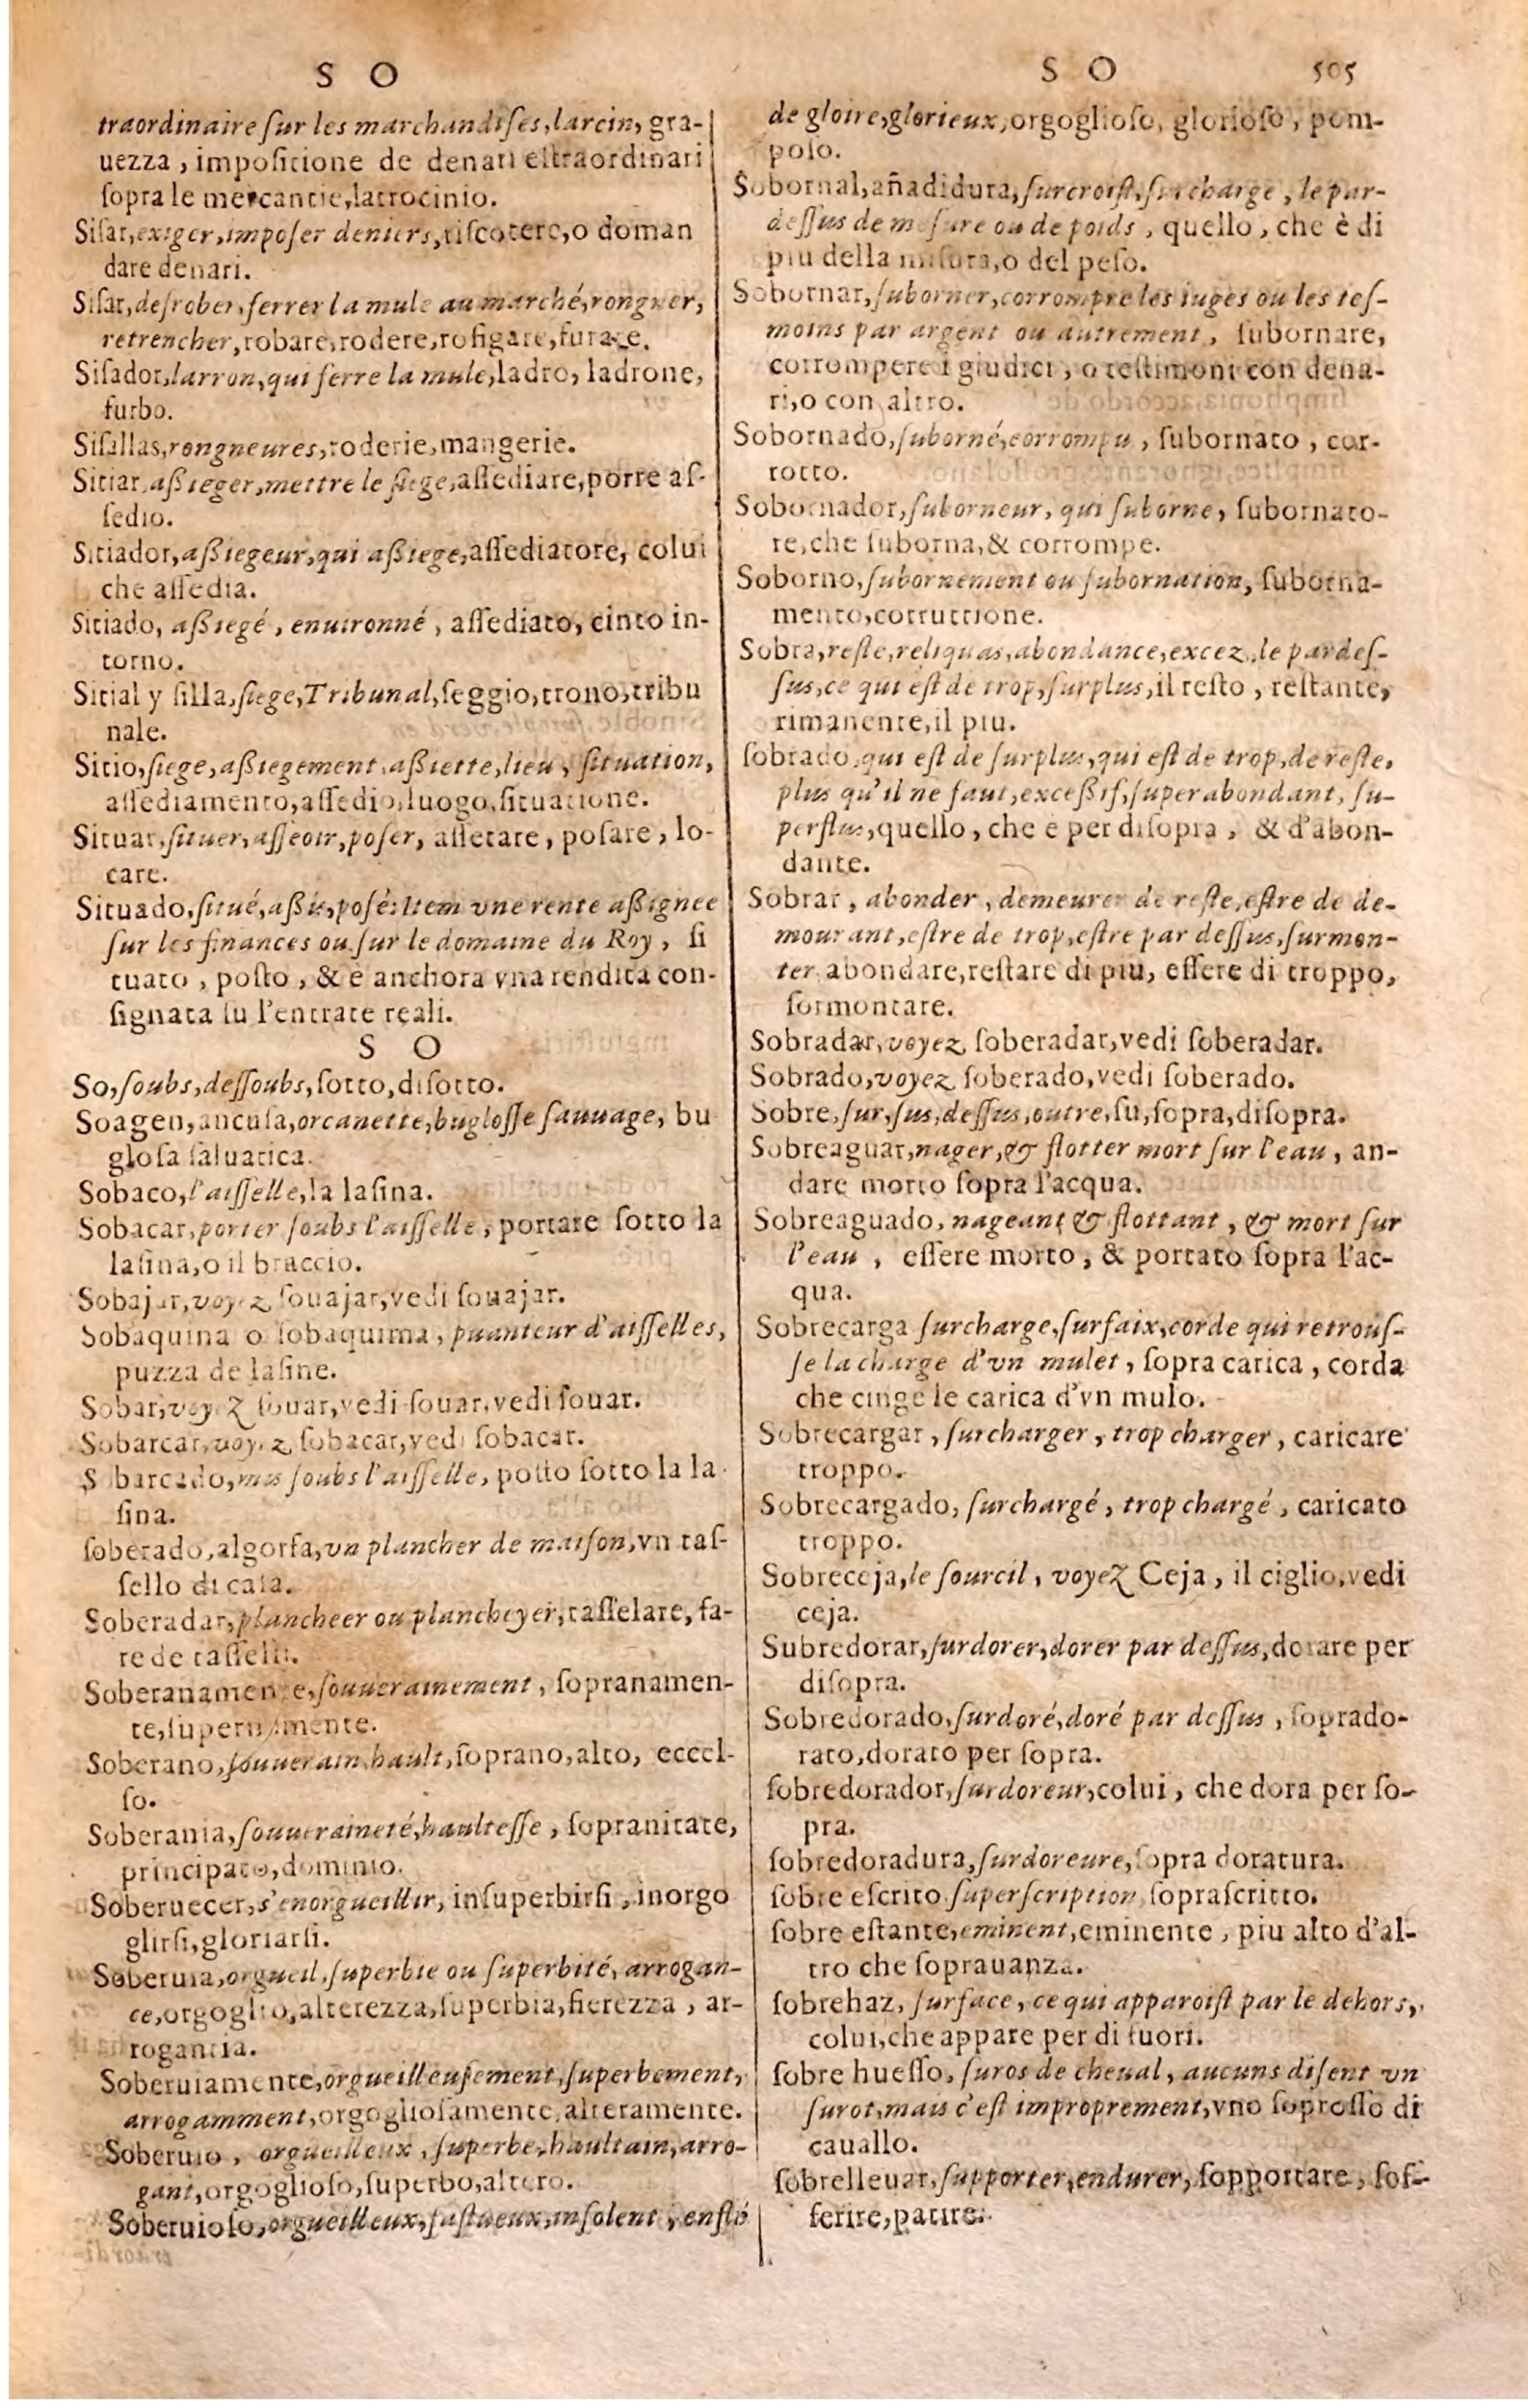 S O
traordinaire ſur les marchandiſes, larcin, gra-
uezza, impoſitione de denari eſtraordinari
ſopra le mercantie, latrocinio.
Siſar, exiger, impoſer deniers, riſcotere, o doman
dare denari.
Siſar, deſrober, ferrer la mule au marché, rongner,
retrencher, robare, rodere, roſigare, furare.
Siſador, larron, qui ferre la mule, ladro, ladrone,
furbo.
Siſallas, rongneures, roderie, mangerie.
Sitiar, aßieger, mettre le ſiege, aſſediare, porre aſ-
ſedio.
Sitiador, aßiegeur, qui aßiege, aſſediatore, colui
che aſſedia.
Sitiado, aßiegé, enuironné, aſſediato, cinto in-
torno.
Sitial y ſilla, ſiege, Tribunal, ſeggio, trono, tribu
nale.
Sitio, ſiege, aßiegement, aßiette, lieu, ſituation,
aſſediamento, aſſedio, luogo, ſituatione.
Situar, ſituer, aſſeoir, poſer, aſſetare, poſare, lo-
care.
Situado, ſitué, aßis, poſé: Item vne rente aßignee
ſur les finances ou ſur le domaine du Roy, ſi
tuato, poſto, & è anchora vna rendita con-
ſignata ſu l'entrate reali.
S O
So, ſoubs, deſſoubs, ſotto, diſotto.
Soagen, ancuſa, orcanette, bugloſſe ſauuage, bu
gloſa ſaluatica.
Sobaco, l'aiſſelle, la laſina.
Sobacar, porter ſoubs l'aiſſelle, portare ſotto la
laſina, o il braccio.
Sobajar, voyez ſouajar, vedi ſouajar.
Sobaquina o ſobaquima, puanteur d'aiſſelles,
puzza de laſine.
Sobar, voyez ſouar, vedi ſouar, vedi ſouar.
Sobarcar, voyez ſobacar, vedi ſobacar.
S barcado, mis ſoubs l'aiſſelle, poſto ſotto la la
ſina.
ſoberado, algorfa, vn plancher de maiſon, vn taſ-
ſello di caſa.
Soberadar, plancheer ou plancheyer, taſſelare, fa-
re de taſſelli.
Soberanamente, ſouuerainement, ſopranamen-
te, ſupernamente.
Soberano, ſouuerain, hault, ſoprano, alto, eccel-
ſo.
Soberania, ſouueraineté, haulteſſe, ſopranitate,
principato, dominio.
Soberuecer, s'enorgueillir, inſuperbirſi, inorgo
glirſi, gloriarſi.
Soberuia, orgueil, ſuperbie ou ſuperbité, arrogan-
ce, orgoglio, alterezza, ſuperbia, fierezza, ar-
rogantia.
Soberuiamente, orgueilleuſement, ſuperbement,
arrogamment, orgoglioſamente, alteramente.
Soberuio, orgueilleux, ſuperbe, haultain, arro-
gant, orgoglioſo, ſuperbo, altero.
Soberuioſo, orgueilleux, faſtueux, inſolent, enflé
S O 505
de gloire, glorieux, orgoglioſo, glorioſo, pom-
poſo.
Sobornal, añadidura, ſurcroiſt, ſurcharge, le par-
deſſus de meſure ou de poids, quello, che è di
piu della miſura, o del peſo.
Sobornar, ſuborner, corrompre les iuges ou les teſ-
moins par argent ou autrement, ſubornare,
corrompere i giudici, o teſtimoni con dena-
ri, o con altro.
Sobornado, ſuborné, corrompu, ſubornato, cor-
rotto.
Sobornador, ſuborneur, qui ſuborne, ſubornato-
re, che ſuborna, & corrompe.
Soborno, ſubornement ou ſubornation, ſuborna-
mento, corruttione.
Sobra, reſte, reliquas, abondance, excez, le pardeſ-
ſus, ce qui eſt de trop, ſurplus, il reſto, reſtante,
rimanente, il piu.
ſobrado, qui eſt de ſurplus, qui eſt de trop, de reſte,
plus qu'il ne faut, exceßif, ſuperabondant, ſu-
perflus, quello, che è per diſopra, & d'abon-
dante.
Sobrar, abonder, demeurer de reſte, eſtre de de-
mourant, eſtre de trop, eſtre par deſſus, ſurmon-
ter, abondare, reſtare di piu, eſſere di troppo,
ſormontare.
Sobradar, voyez ſoberadar, vedi ſoberadar.
Sobrado, voyez ſoberado, vedi ſoberado.
Sobre, ſur, ſus, deſſus, outre, ſu, ſopra, diſopra.
Sobreaguar, nager, & flotter mort ſur l'eau, an-
dare morto ſopra l'acqua.
Sobreaguado, nageant & flottant, & mort ſur
l'eau, eſſere morto, & portato ſopra l'ac-
qua.
Sobrecarga ſurcharge, ſurfaix, corde qui retrouſ-
ſe la charge d'vn mulet, ſopra carica, corda
che cinge le carica d'vn mulo.
Sobrecargar, ſurcharger, trop charger, caricare
troppo.
Sobrecargado, ſurchargé, trop chargé, caricato
troppo.
Sobreceja, le ſourcil, voyez Ceja, il ciglio, vedi
ceja.
Subredorar, ſurdorer, dorer par deſſus, dorare per
diſopra.
Sobredorado, ſurdoré, doré par deſſus, ſoprado-
rato, dorato per ſopra.
ſobredorador, ſurdoreur, colui, che dora per ſo-
pra.
ſobredoradura, ſurdoreure, ſopra doratura.
ſobre eſcrito ſuperſcription, ſopraſcritto.
ſobre eſtante, eminent, eminente, piu alto d'al-
tro che ſoprauanza.
ſobrehaz, ſurface, ce qui apparoiſt par le dehors,
colui, che appare per di fuori.
ſobre hueſſo, ſuros de cheual, aucuns diſent vn
ſurot, mais c'eſt improprement, vno ſoproſſo di
cauallo.
ſobrelleuar, ſupporter, endurer, ſopportare, ſof-
ferire, patire.